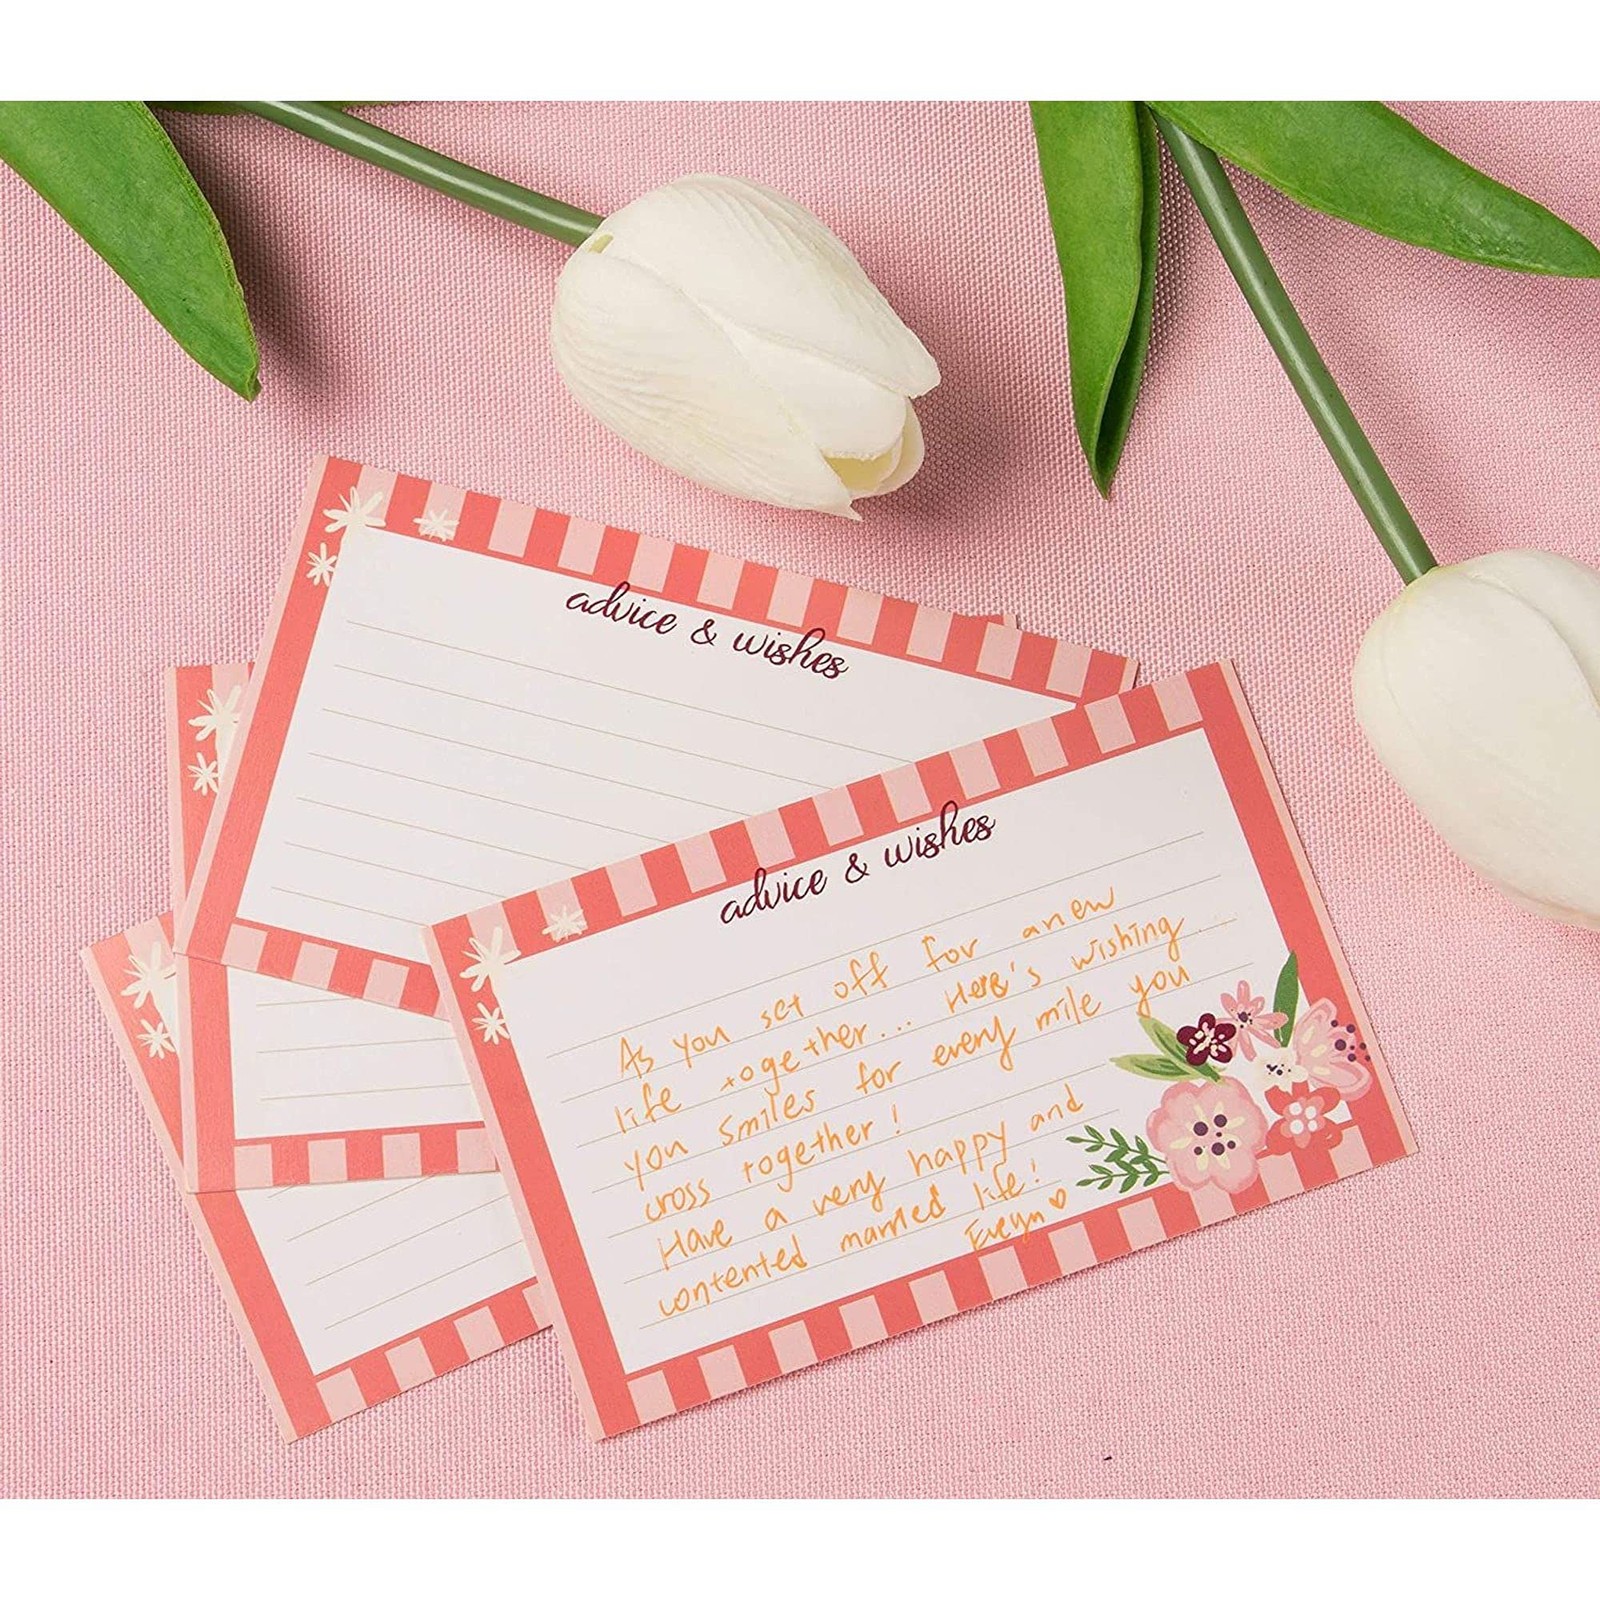 advice & wishes
advice & wishes
As you set off for anew
life together... Here's wishing...
you smiles for every mile you
cross together!
Have a very happy and
contented married life!
Evelyn ♡